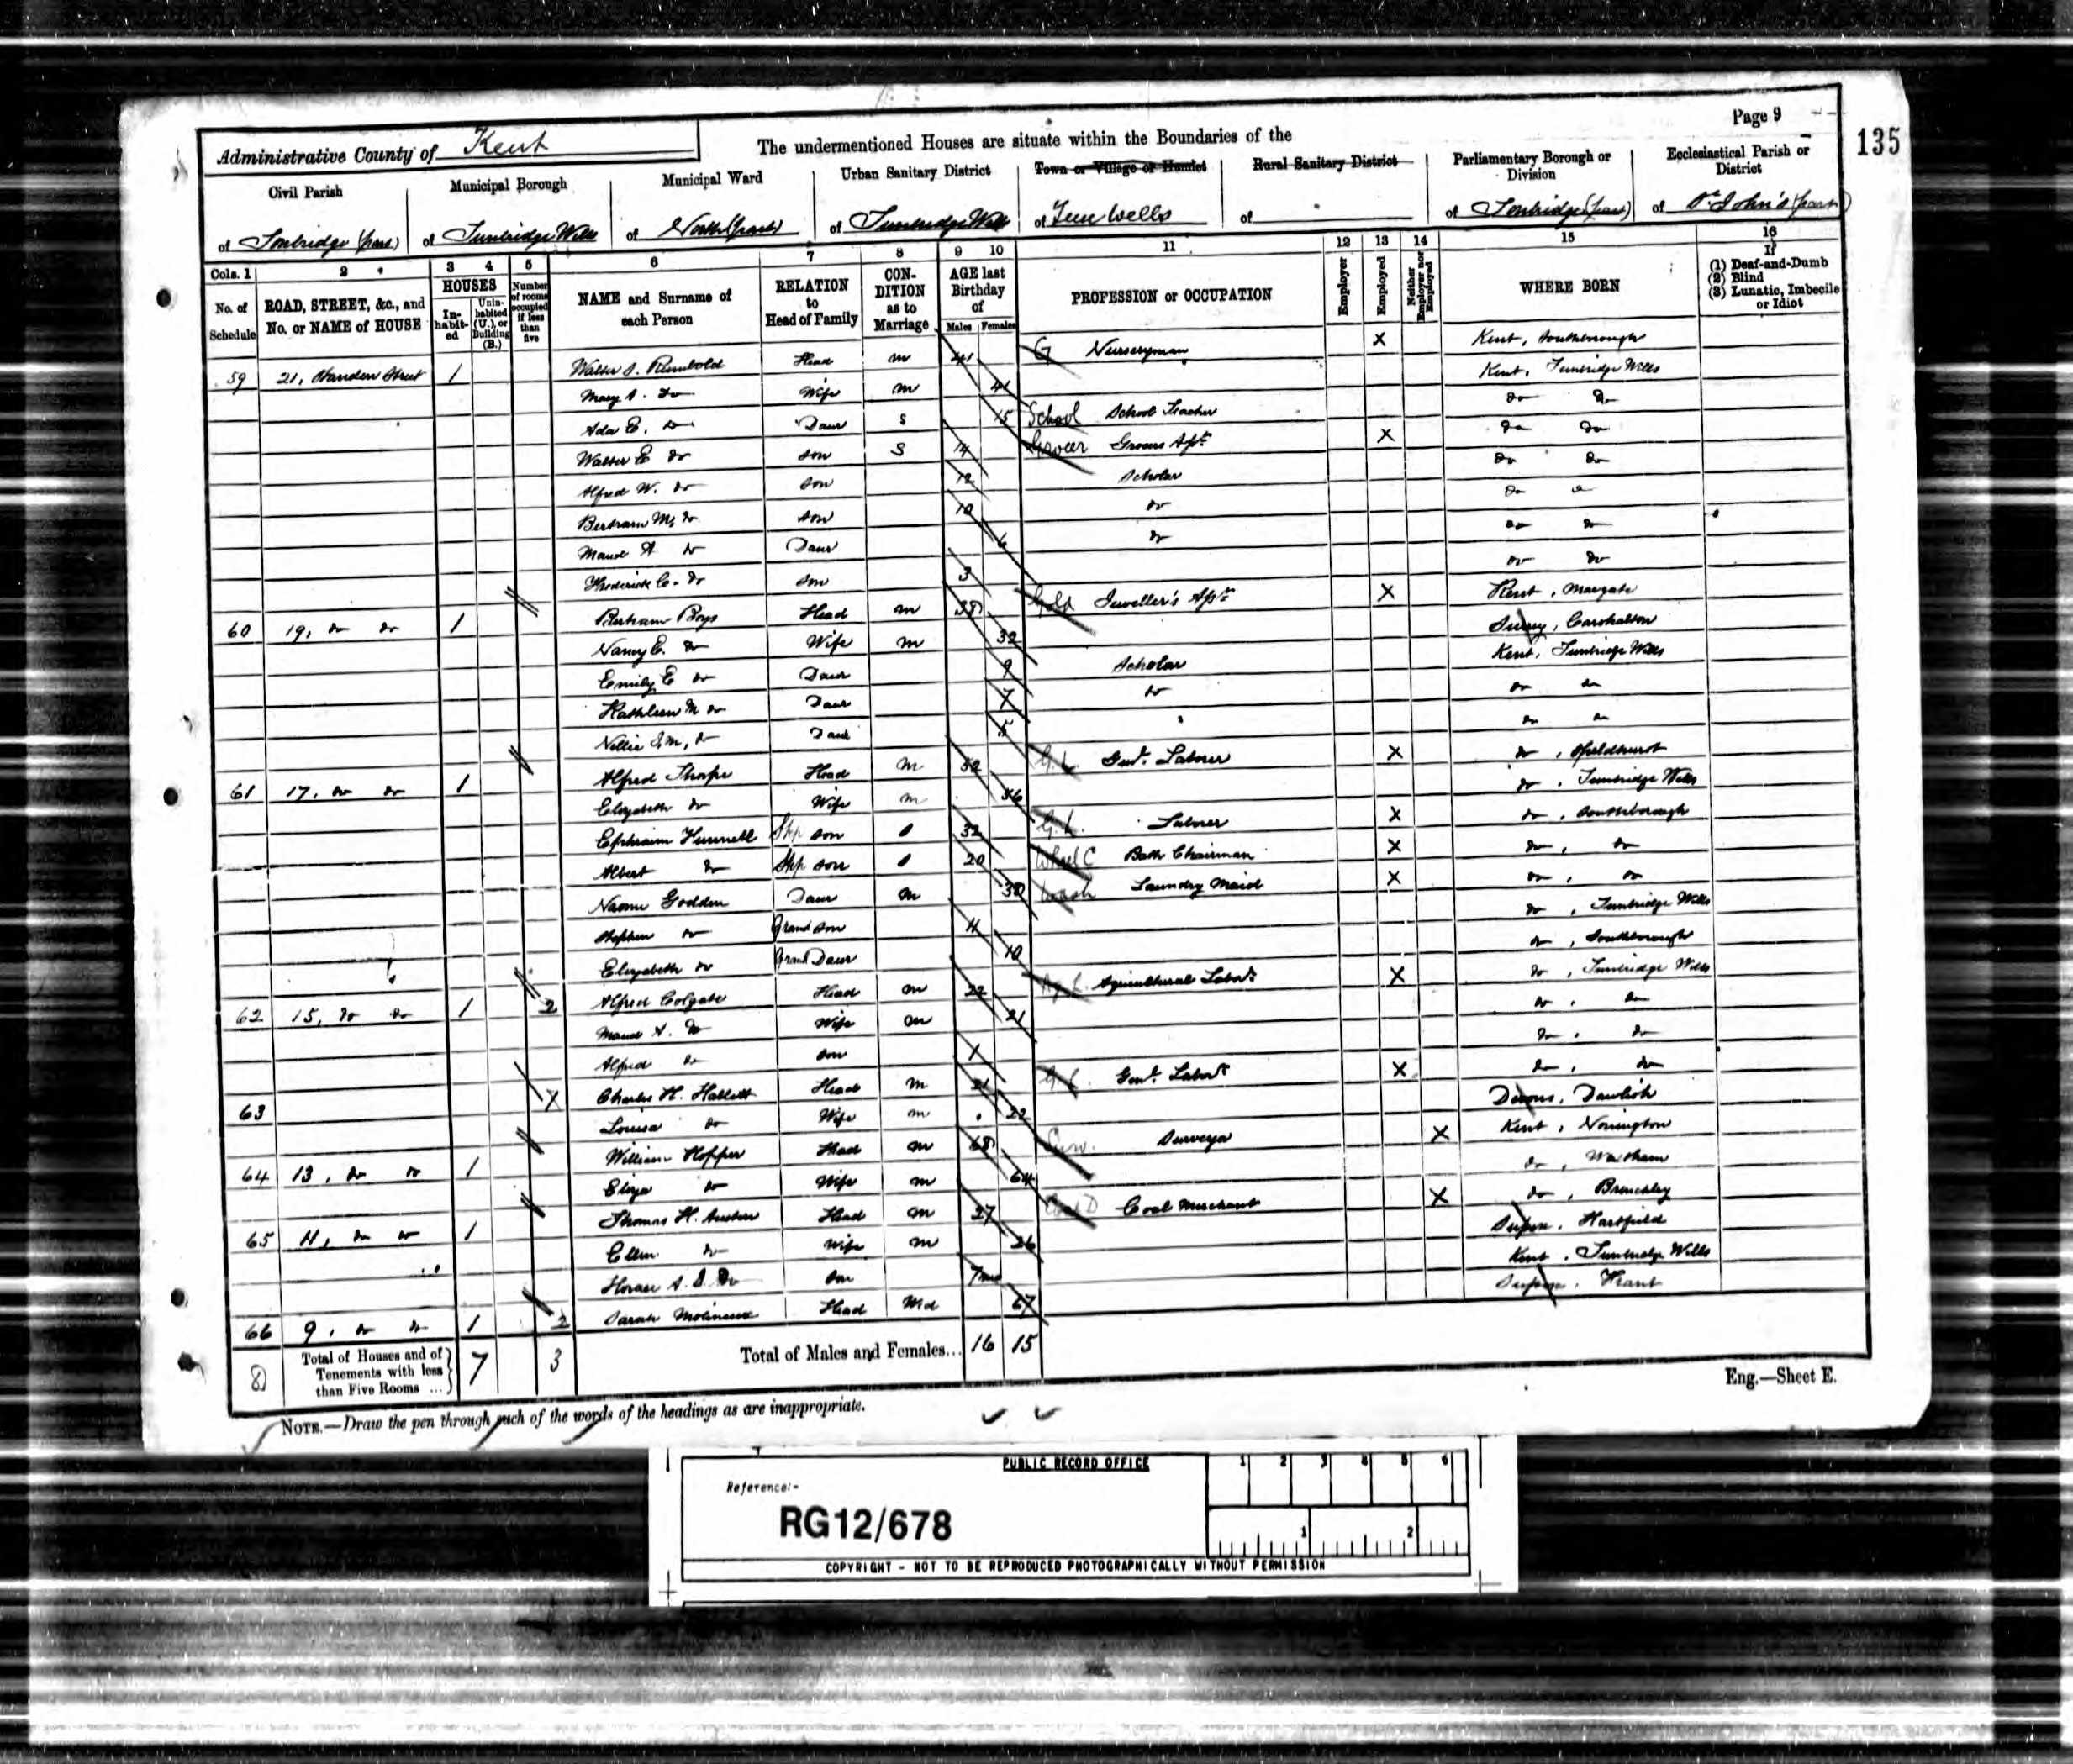 Page 9
135
Administrative County of Kent
The undermentioned Houses are situate within the Boundaries of the
Civil Parish
Municipal Borough
Municipal Ward
Urban Sanitary District
Town or Village or Hamlet
Rural Sanitary District
Parliamentary Borough or Division
Ecclesiastical Parish or District
of Tonbridge (part)
of Tunbridge Wells
of North (part)
of Tunbridge Wells
of Tun Wells
of
of Tonbridge (part)
of St John's (part)
Cols. 1 2 3 4 5 6 7 8 9 10 11 12 13 14 15 16
No. of Schedule
ROAD, STREET, &c., and No. or NAME of HOUSE
HOUSES
In-habit-ed
Unin-habited (U.), or Building (B.)
Number of rooms occupied if less than five
NAME and Surname of each Person
RELATION to Head of Family
CON-DITION as to Marriage
AGE last Birthday of
Males Females
PROFESSION or OCCUPATION
Employer
Employed
Neither Employer nor Employed
WHERE BORN
If
(1) Deaf-and-Dumb
(2) Blind
(3) Lunatic, Imbecile or Idiot
59 21, Street 1 Walter Rumbold Head M 41 Nurseryman X Kent, Southborough
Mary A. Do Wife M 41 Kent, Tunbridge Wells
Ada E. Do Daur S 15 School School Teacher Do Do
Walter E Do Son S 14 Grocer Grocers Apt X Do Do
Alfred W. Do Son 12 Scholar Do Do
Bertram M. Do Son 10 Do Do
Maud A Do Daur 6 Do Do Do
Frederick C. Do Son 3 Do Do
60 19, Do Do 1 Bertram Boys Head M Gold Jeweller's X Kent, Margate
Nancy E. Do Wife M 32 Surrey, Carshalton
Emily E Do Daur 9 Scholar Kent, Tunbridge Wells
Kathleen M Do Daur 7 Do Do Do
Nellie Do Daur 5 Do Do
61 17, Do Do 1 Alfred Tharpe Head M 52 G.L. Genl. Laborer X Do, Speldhurst
Elizabeth Do Wife M 56 Do, Tunbridge Wells
Ephraim Funnell Step Son S 32 G.L. Laborer X Do, Southborough
Albert Do Step Son S 20 Wheel C Bath Chairman X Do, Do
Naomi Godden Daur M 30 Wash Laundry Maid X Do, Do
Stephen Do Grand Son 11 Do, Tunbridge Wells
Elizabeth Do Grand Daur 10 Do, Southborough
62 15, Do Do 1 2 Alfred Colgate Head M 22 Ag. L. Agricultural Labr. X Do, Tunbridge Wells
Maud A. Do Wife M 21 Do, Do
Alfred Do Son 1 Do, Do
63 Charles H. Hallett Head M 21 G.L. Genl. Labr. X Do, Do
Louisa Do Wife M 22 Devons, Dawlish
64 13, Do Do 1 William Hopper Head M 68 Surv. Surveyor X Kent, Nonington
Eliza Do Wife M 64 Do, Waltham
65 11, Do Do 1 Thomas H. Head M 27 Coal D Coal Merchant X Do, Brenchley
Ellen Do Wife M 26 Sussex, Hartfield
Horace A. Do Son 7 mo Kent, Tunbridge Wells
66 9, Do Do 1 2 Sarah Molineux Head Wd 67 Sussex, Frant
8 Total of Houses and of Tenements with less than Five Rooms ... 7 3 Total of Males and Females... 16 15
Eng.—Sheet E.
NOTE.—Draw the pen through such of the words of the headings as are inappropriate.
PUBLIC RECORD OFFICE
1 2 3 4 5 6
Reference:-
RG12/678
1 2
COPYRIGHT - NOT TO BE REPRODUCED PHOTOGRAPHICALLY WITHOUT PERMISSION